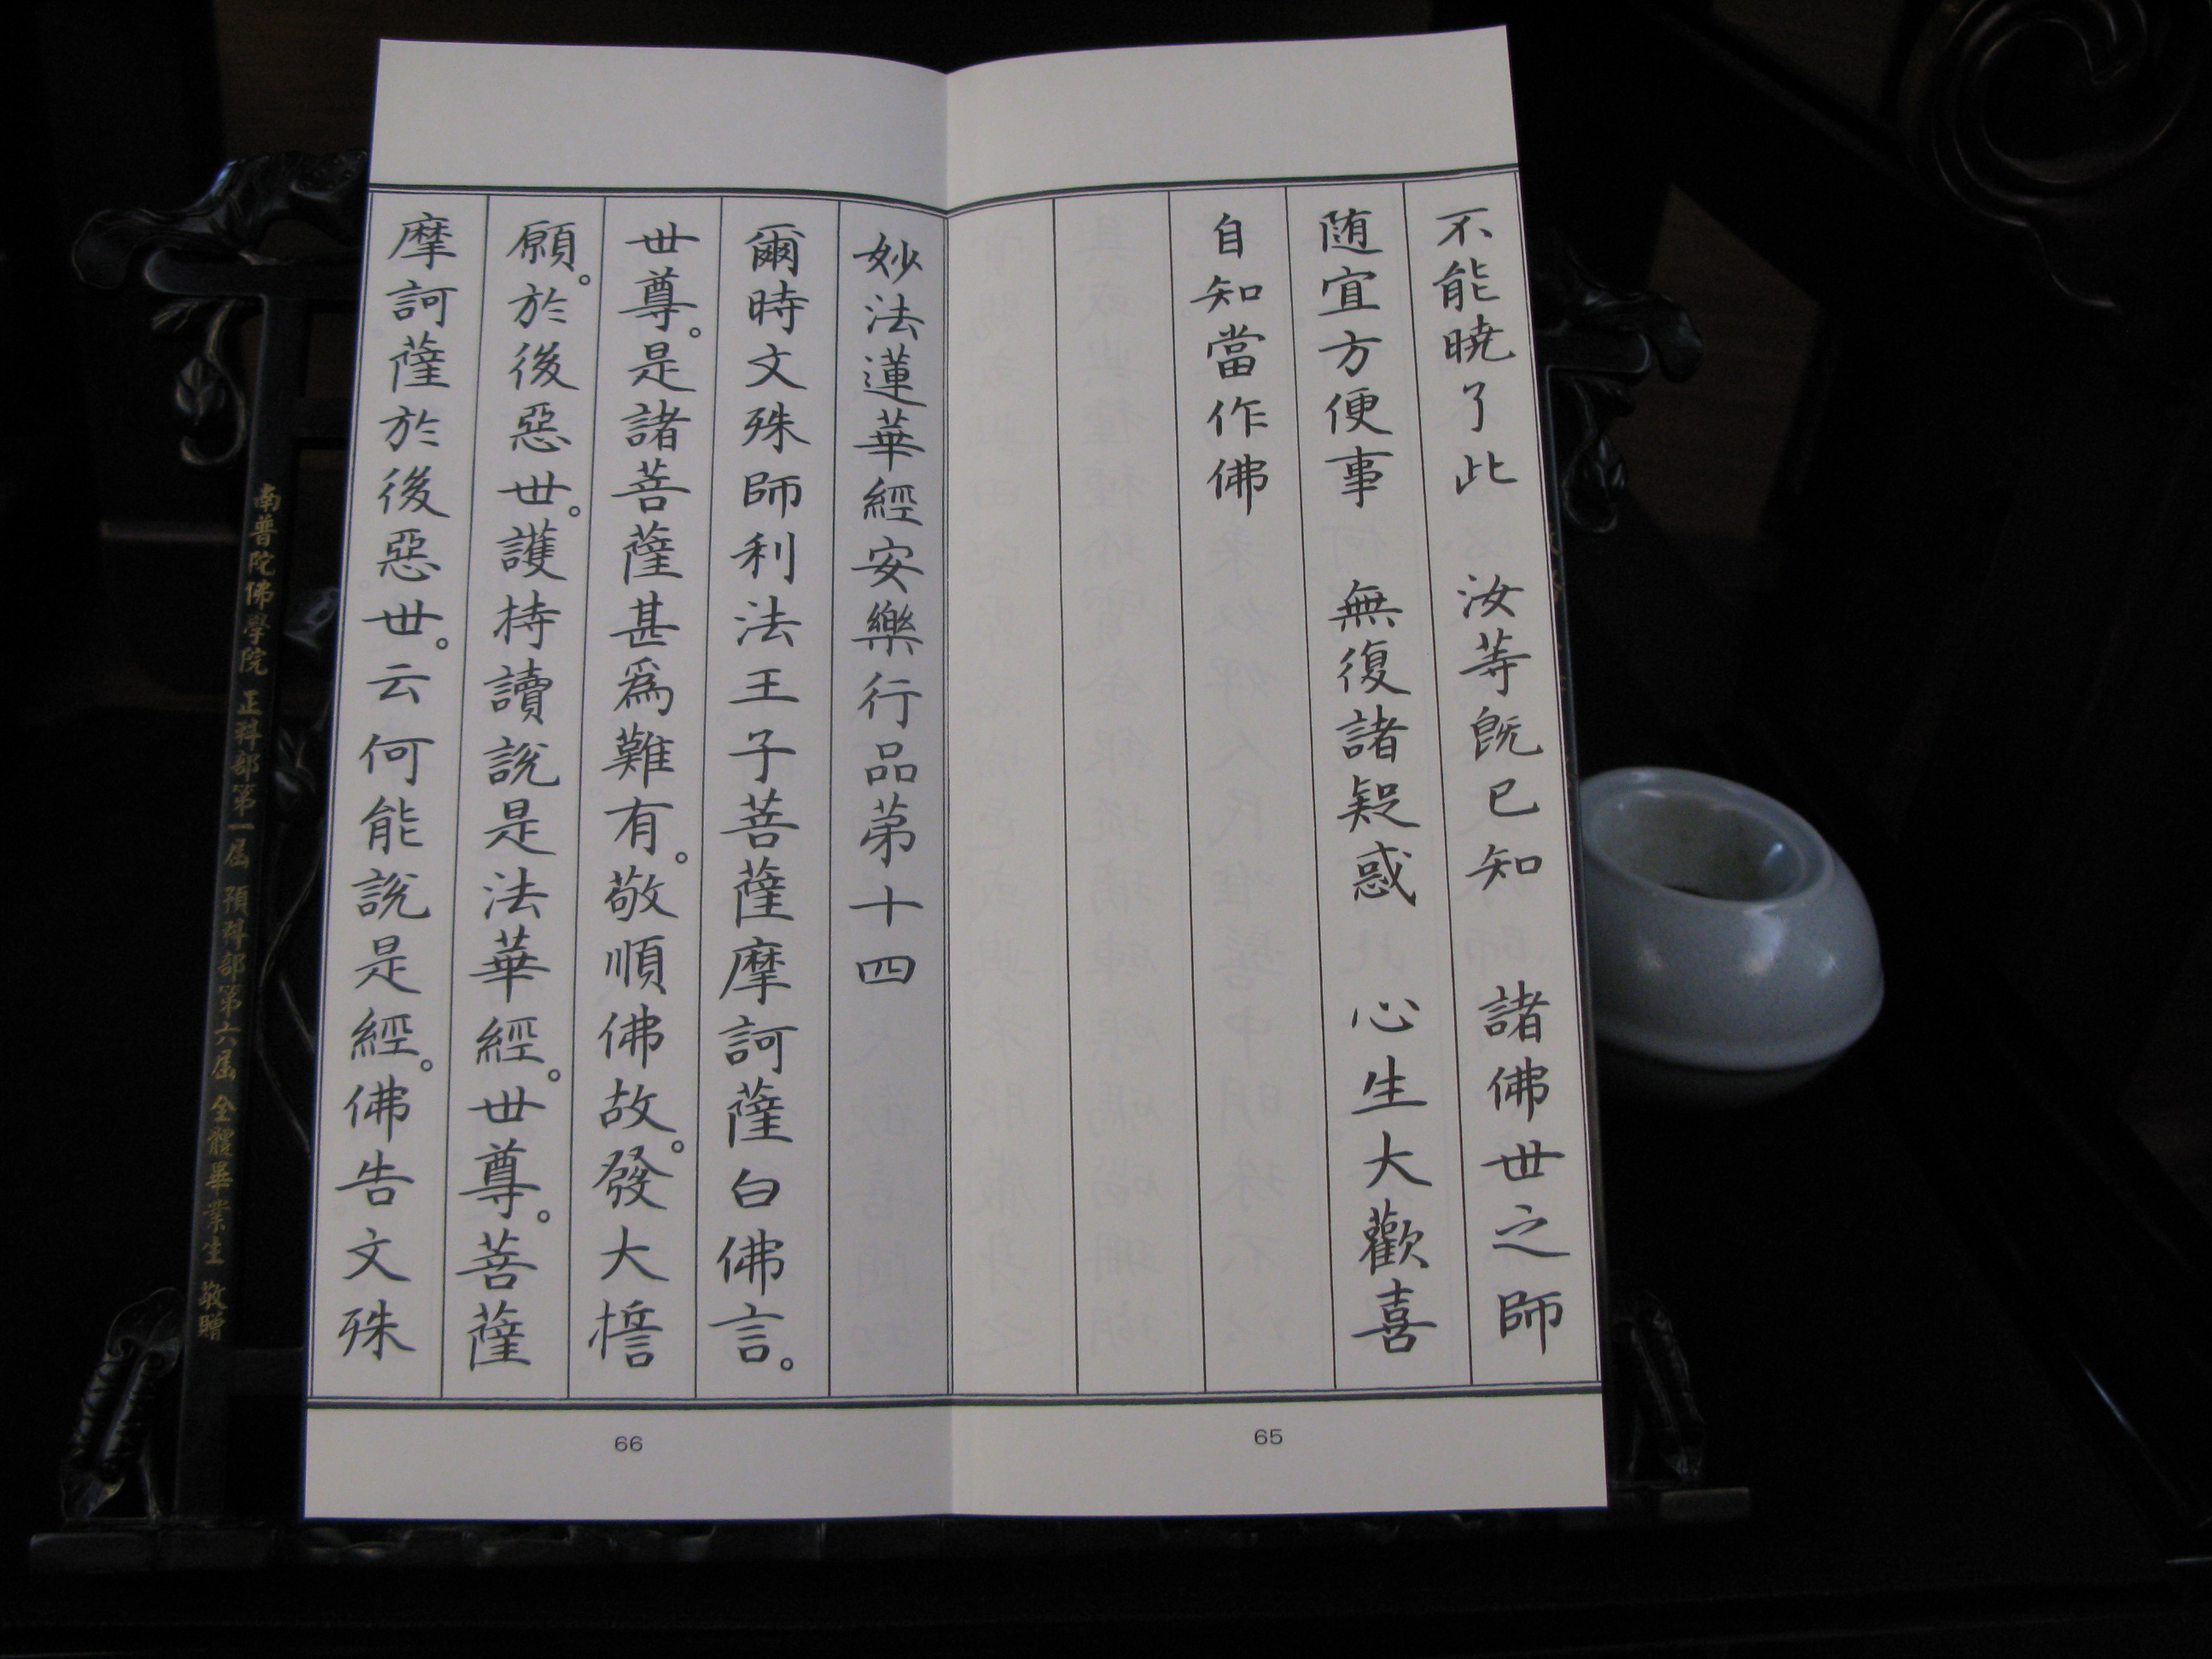 不能曉了此　汝等既已知　諸佛世之師
随宜方便事　無復諸疑惑　心生大歡喜
自知當作佛
65
妙法蓮華經安樂行品第十四
爾時文殊師利法王子菩薩摩訶薩白佛言。
世尊。是諸菩薩甚為難有。敬順佛故。發大誓
願。於後惡世。護持讀說是法華經。世尊。菩薩
摩訶薩於後惡世。云何能說是經。佛告文殊
66
南普陀佛學院 正科部第一屆 預科部第六屆 全體畢業生 敬贈